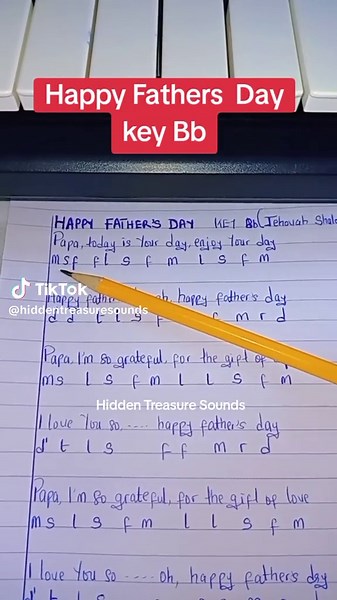 Happy Fathers Day
key Bb
HAPPY FATHER'S DAY KEY Bb (Jehovah Shal
Papa, today is Your day, enjoy Your day
m s f f l s f m l s f m
TikTok
@hiddentreasuresounds
Happy happy father's day
d d t l s f m r d
Papa, I'm so grateful, for the gift of
m s l s f m l l s f m
Hidden Treasure Sounds
I love You so ..... happy father's day
d' t l s f f m r d
Papa, I'm so grateful, for the gift of love
m s l s f m l l s f m
I love You so ..... oh, happy father's day